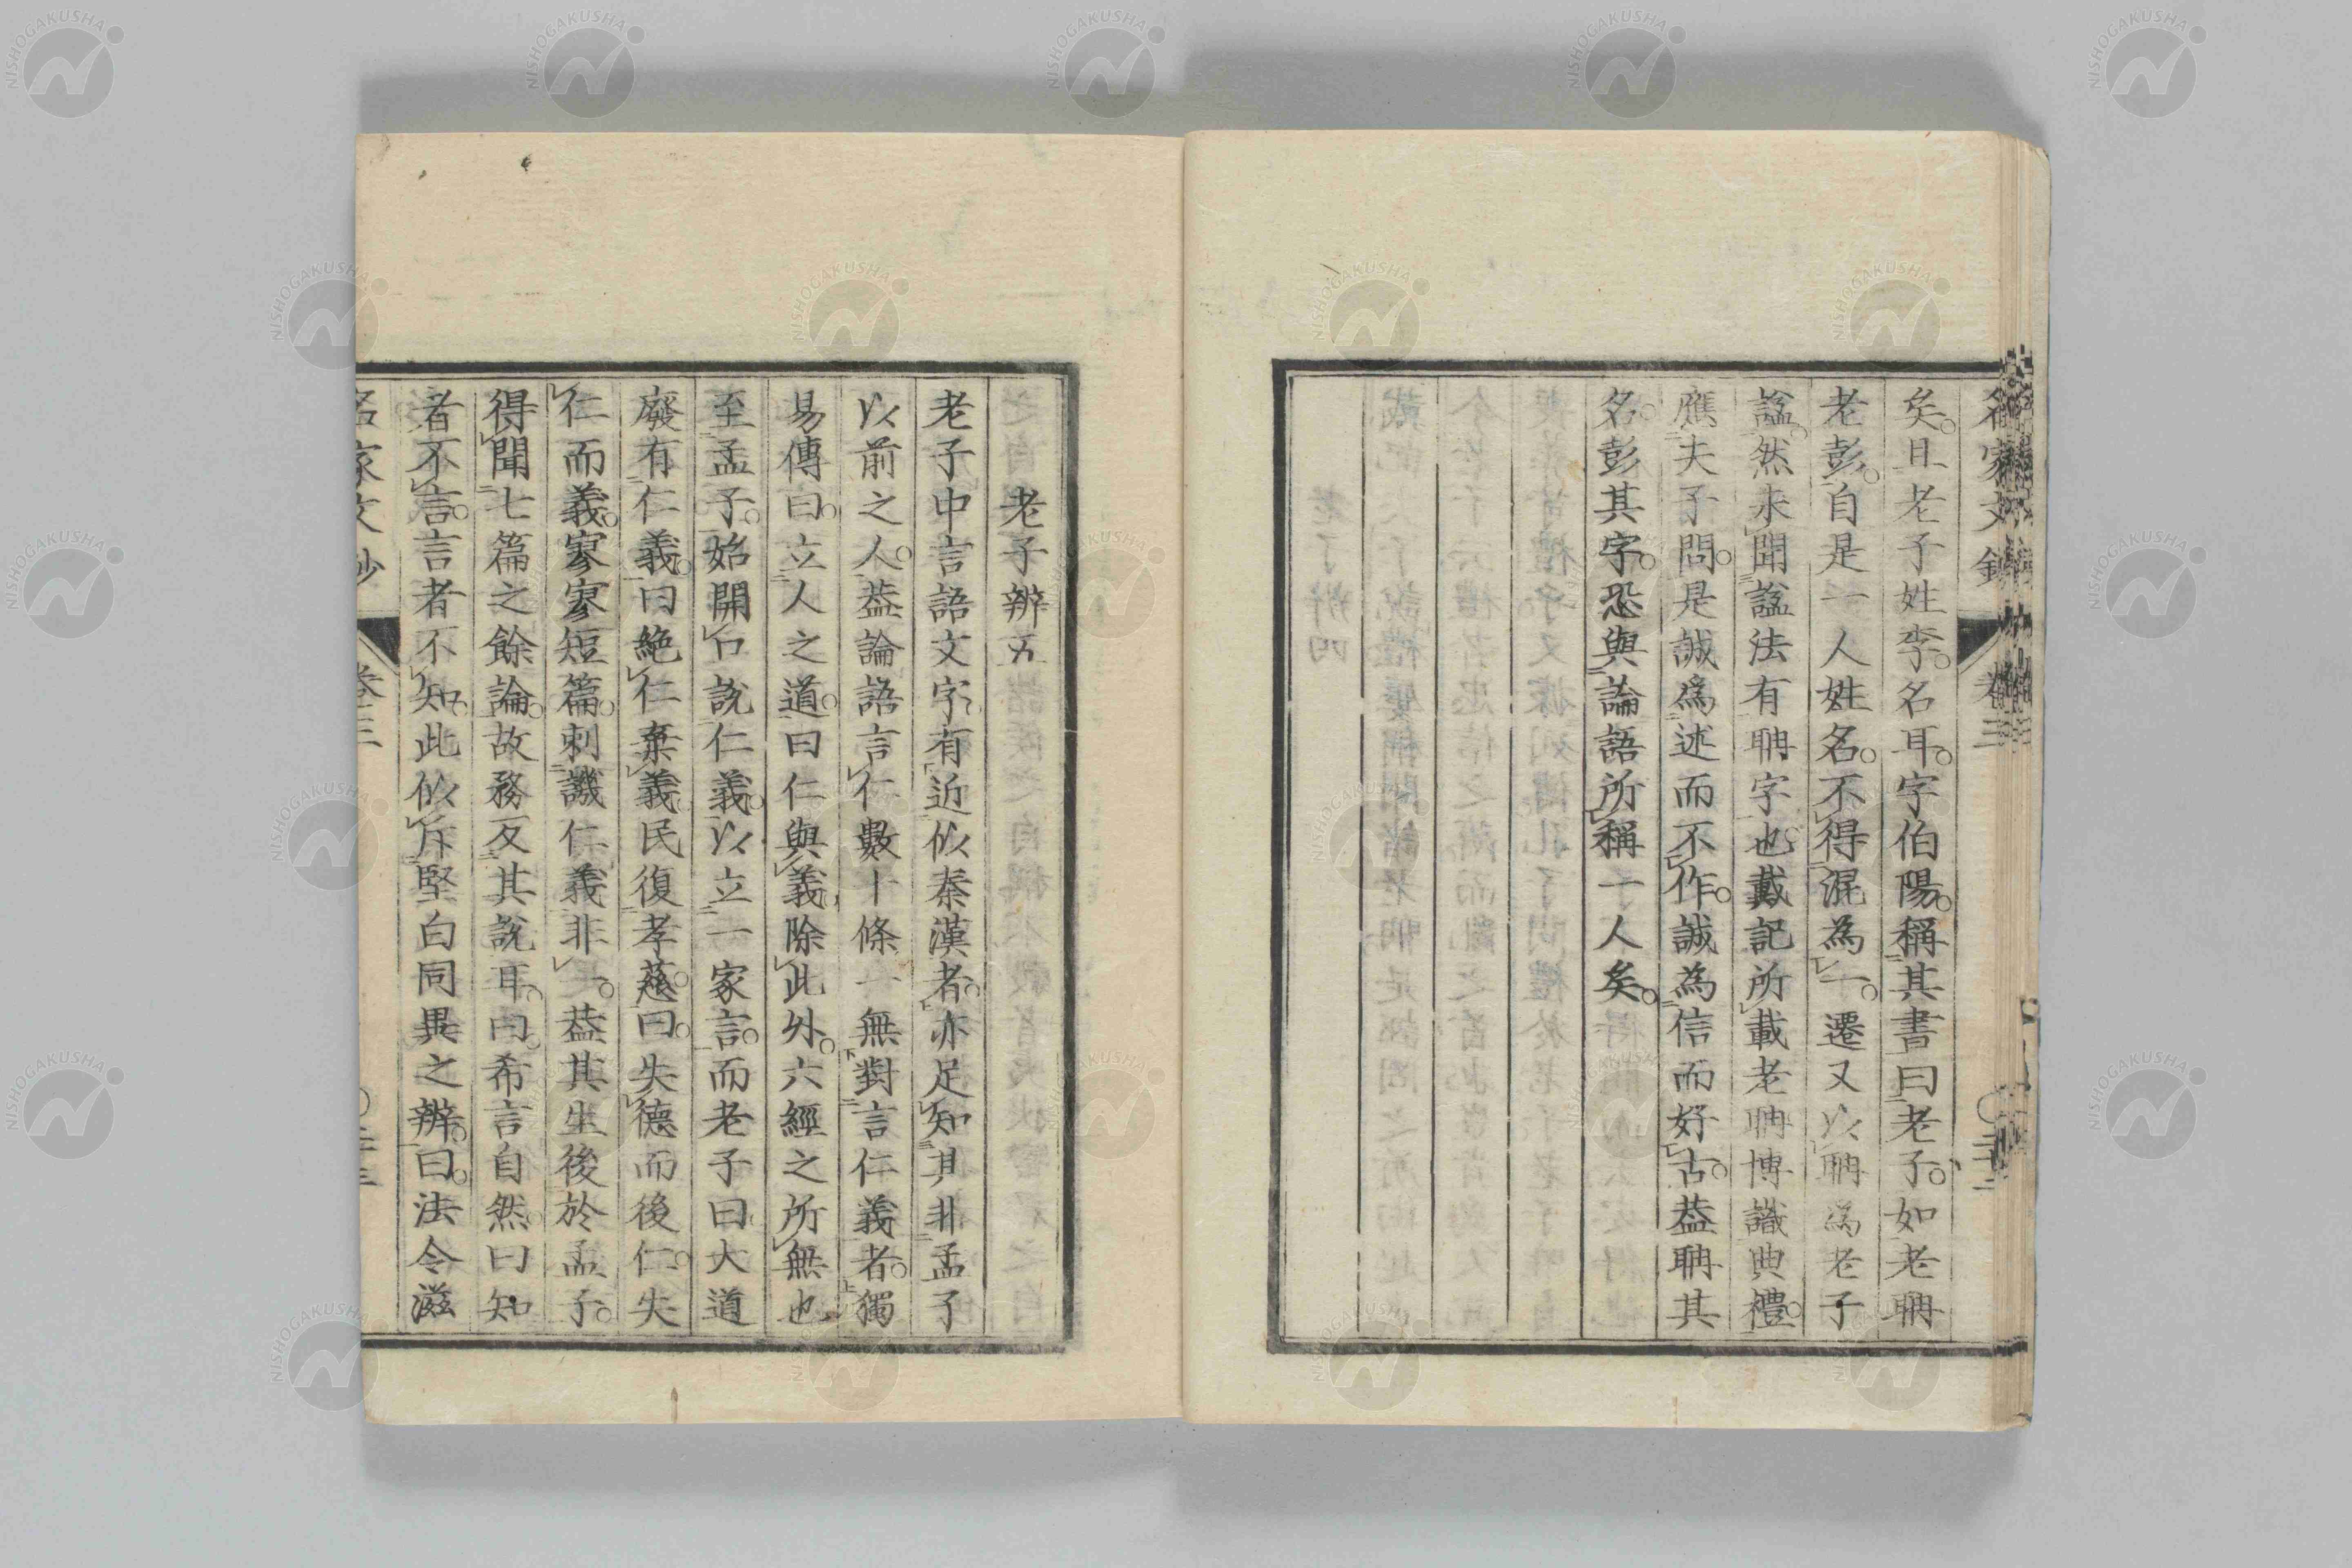 矣。且老子姓李。名耳。字伯陽。稱其書曰老子。如老聃
老彭。自是一人姓名。不得混為一。遷又以聃為老子
諡。然未聞諡法有聃字也。戴記所載老聃博識典禮。
應夫子問。是誠爲述而不作。誠為信而好古。葢聃其
名。彭其字。恐與論語所稱一人矣。
老子辨五
老子中言語文字有近似秦漢者。亦足知其非孟子
以前之人。葢論語言仁數十條一無對言仁義者。獨
易傳曰。立人之道。曰仁與義。除此外。六經之所無也
至孟子。始開口說仁義。以立一家言。而老子曰。大道
廢有仁義。曰絶仁棄義民復孝慈。曰。失德而後仁。失
仁而義。寥寥短篇。刺譏仁義非一。葢其生後於孟子。
得聞七篇之餘論。故務反其說耳。曰。希言自然。曰知
者不言。言者不知。此似斥堅白同異之辨。曰。法令滋
卷三
NISHOGAKUSHA